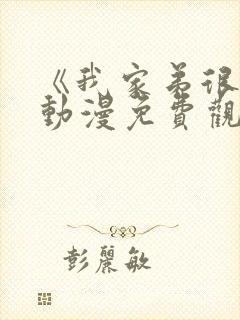 《我家弟很
動漫免費觀
彭麗敏